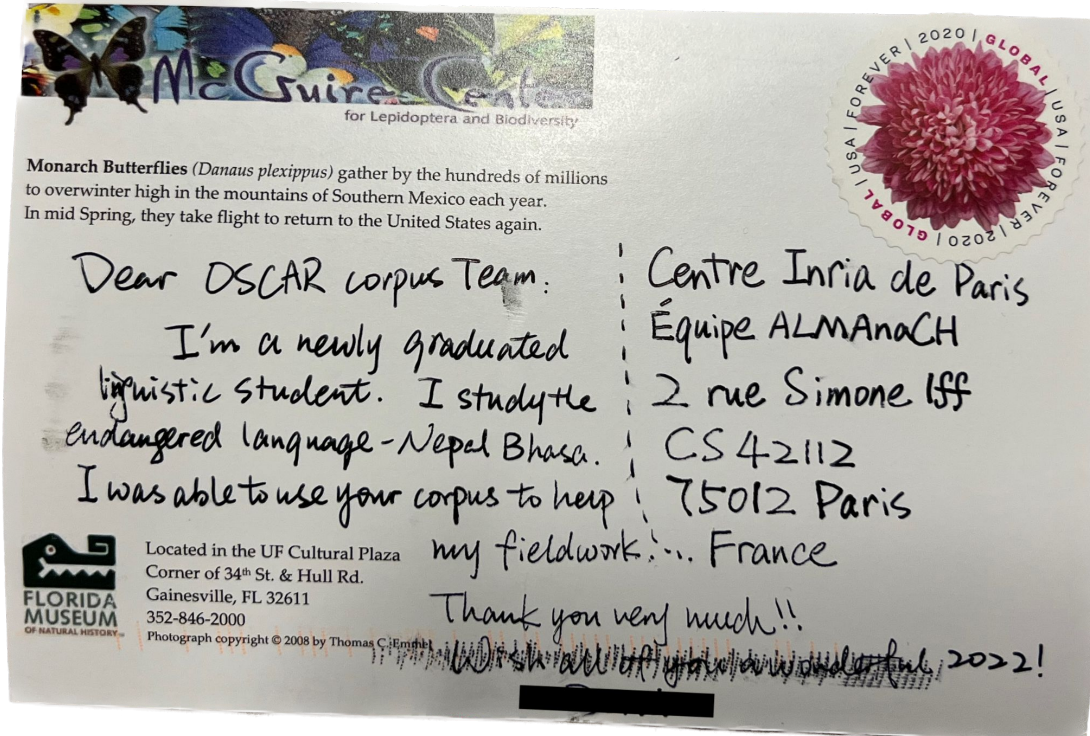 McGuire Center
for Lepidoptera and Biodiversity
GLOBAL | USA | FOREVER | 2020 | GLOBAL | USA | FOREVER | 2020 |
Monarch Butterflies (Danaus plexippus) gather by the hundreds of millions
to overwinter high in the mountains of Southern Mexico each year.
In mid Spring, they take flight to return to the United States again.
Dear OSCAR corpus Team:
I'm a newly graduated
linguistic student. I study the
endangered language - Nepal Bhasa.
I was able to use your corpus to help
my fieldwork.
Thank you very much!!
Wish all of you a wonderful 2022!
Centre Inria de Paris
Équipe ALMAnaCH
2 rue Simone Iff
CS 42112
75012 Paris
France
FLORIDA
MUSEUM
OF NATURAL HISTORY
Located in the UF Cultural Plaza
Corner of 34th St. & Hull Rd.
Gainesville, FL 32611
352-846-2000
Photograph copyright © 2008 by Thomas C. Emmel